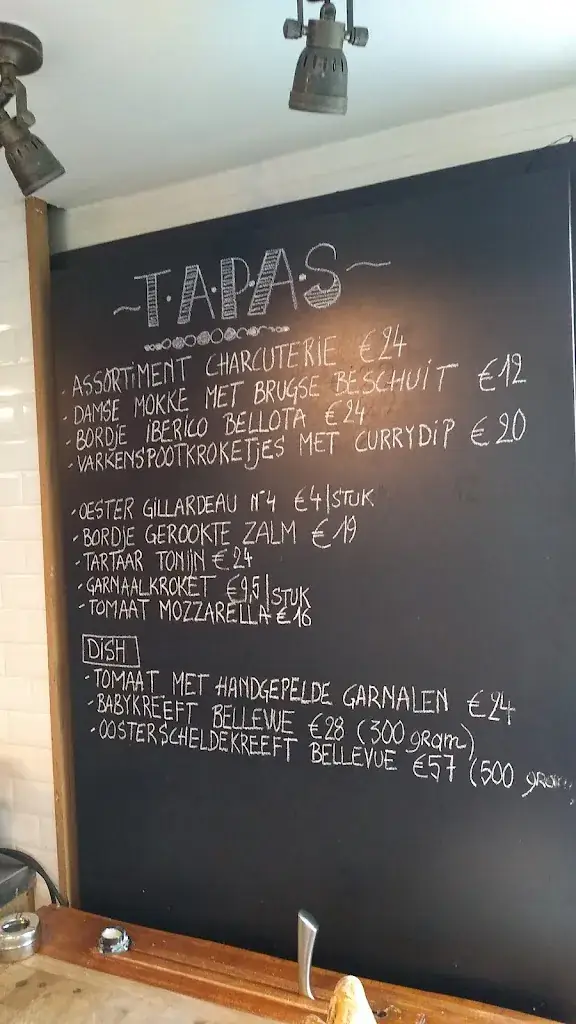 ~T.A.P.A.S~
- ASSORTIMENT CHARCUTERIE €24
- DAMSE MOKKE MET BRUGSE BESCHUIT €12
- BORDJE IBERICO BELLOTA €24
- VARKENSPOOTKROKETJES MET CURRYDIP €20
- OESTER GILLARDEAU N°4 €4/STUK
- BORDJE GEROOKTE ZALM €19
- TARTAAR TONIJN €24
- GARNAALKROKET €9,5/STUK
- TOMAAT MOZZARELLA €16
DISH
- TOMAAT MET HANDGEPELDE GARNALEN €24
- BABYKREEFT BELLEVUE €28 (300 gram)
- OOSTERSCHELDEKREEFT BELLEVUE €57 (500 gram